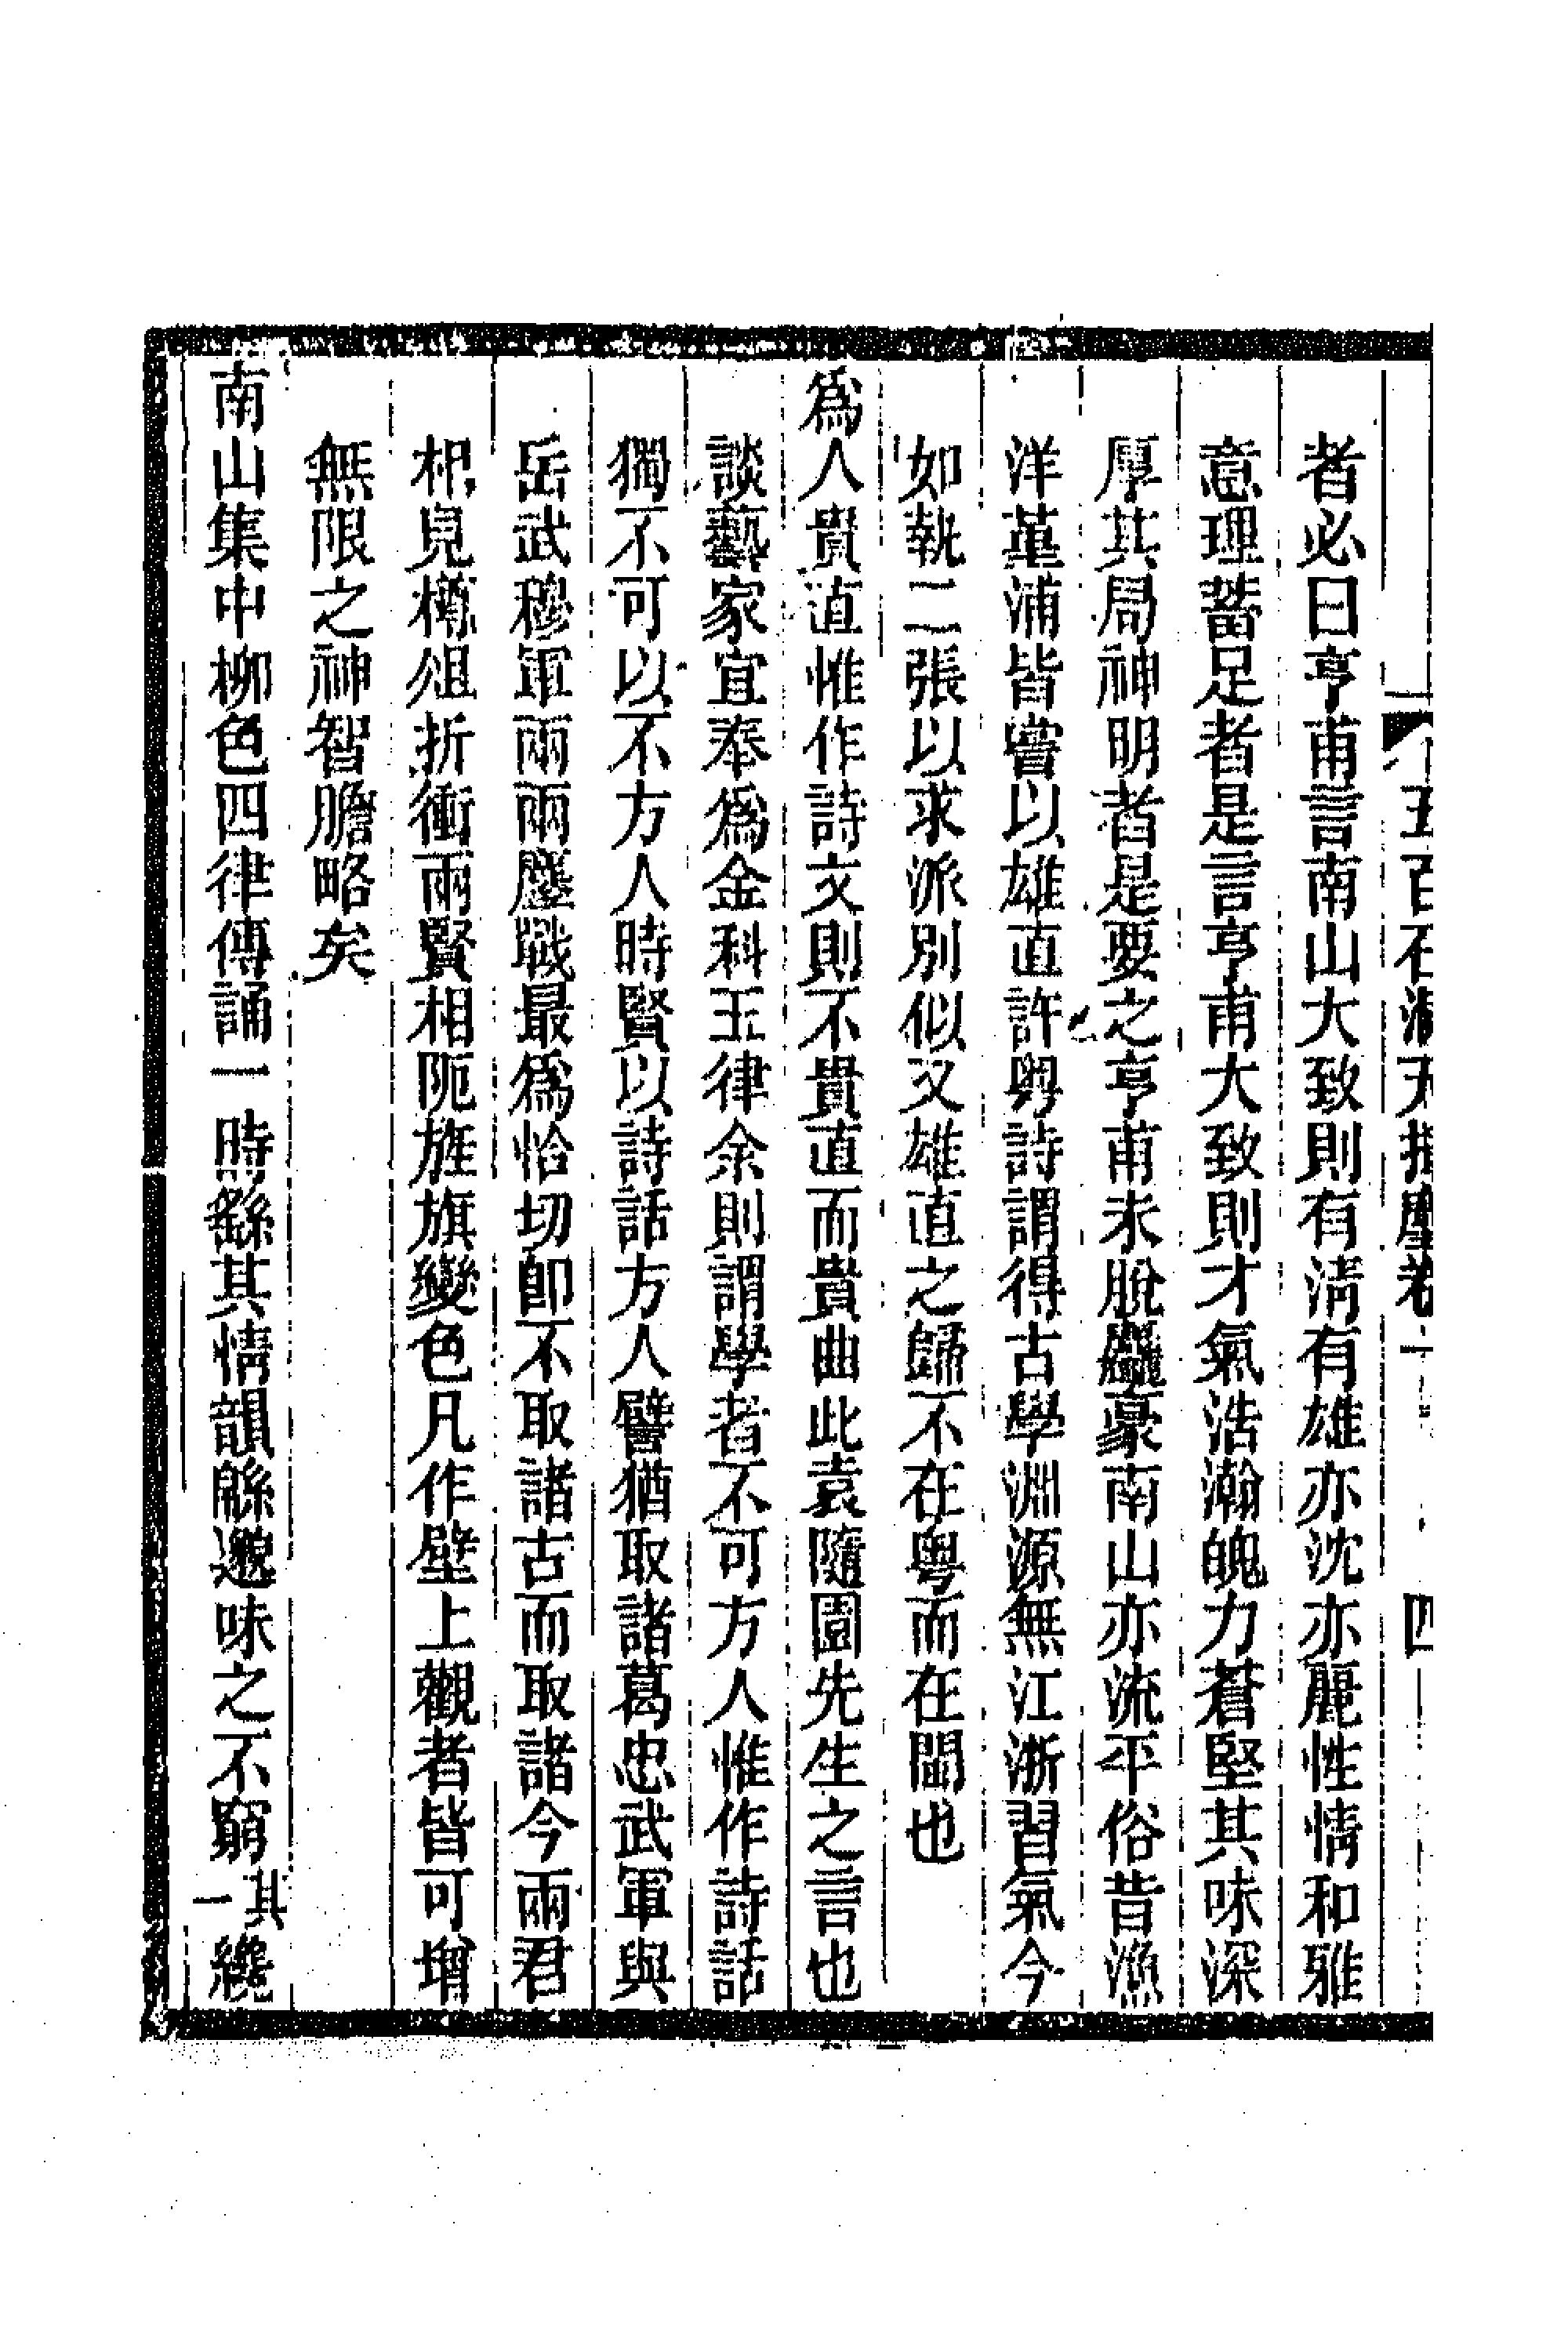 五百石洞天揮麈卷一 四
者必曰亨甫言南山大致則有淸有雄亦沈亦麗性情和雅
意理蓄足者是言亨甫大致則才氣浩瀚魄力蒼堅其味深
厚其局神明者是要之亨甫未脫麤豪南山亦流平俗昔漁
洋菫浦皆嘗以雄直許粵詩謂得古學淵源無江浙習氣今
如執二張以求派別似又雄直之歸不在粵而在閩也
爲人貴直惟作詩文則不貴直而貴曲此袁隨園先生之言也
談藝家宜奉爲金科玉律余則謂學者不可方人惟作詩話
獨不可以不方人時賢以詩話方人譬猶取諸葛忠武軍與
岳武穆軍兩兩鏖戰最爲恰切卽不取諸古而取諸今兩君
相見樽俎折衝兩賢相阨旌旗變色凡作壁上觀者皆可增
無限之神智膽略矣
南山集中柳色四律傳誦一時繇其情韻緜邈味之不窮其一纔